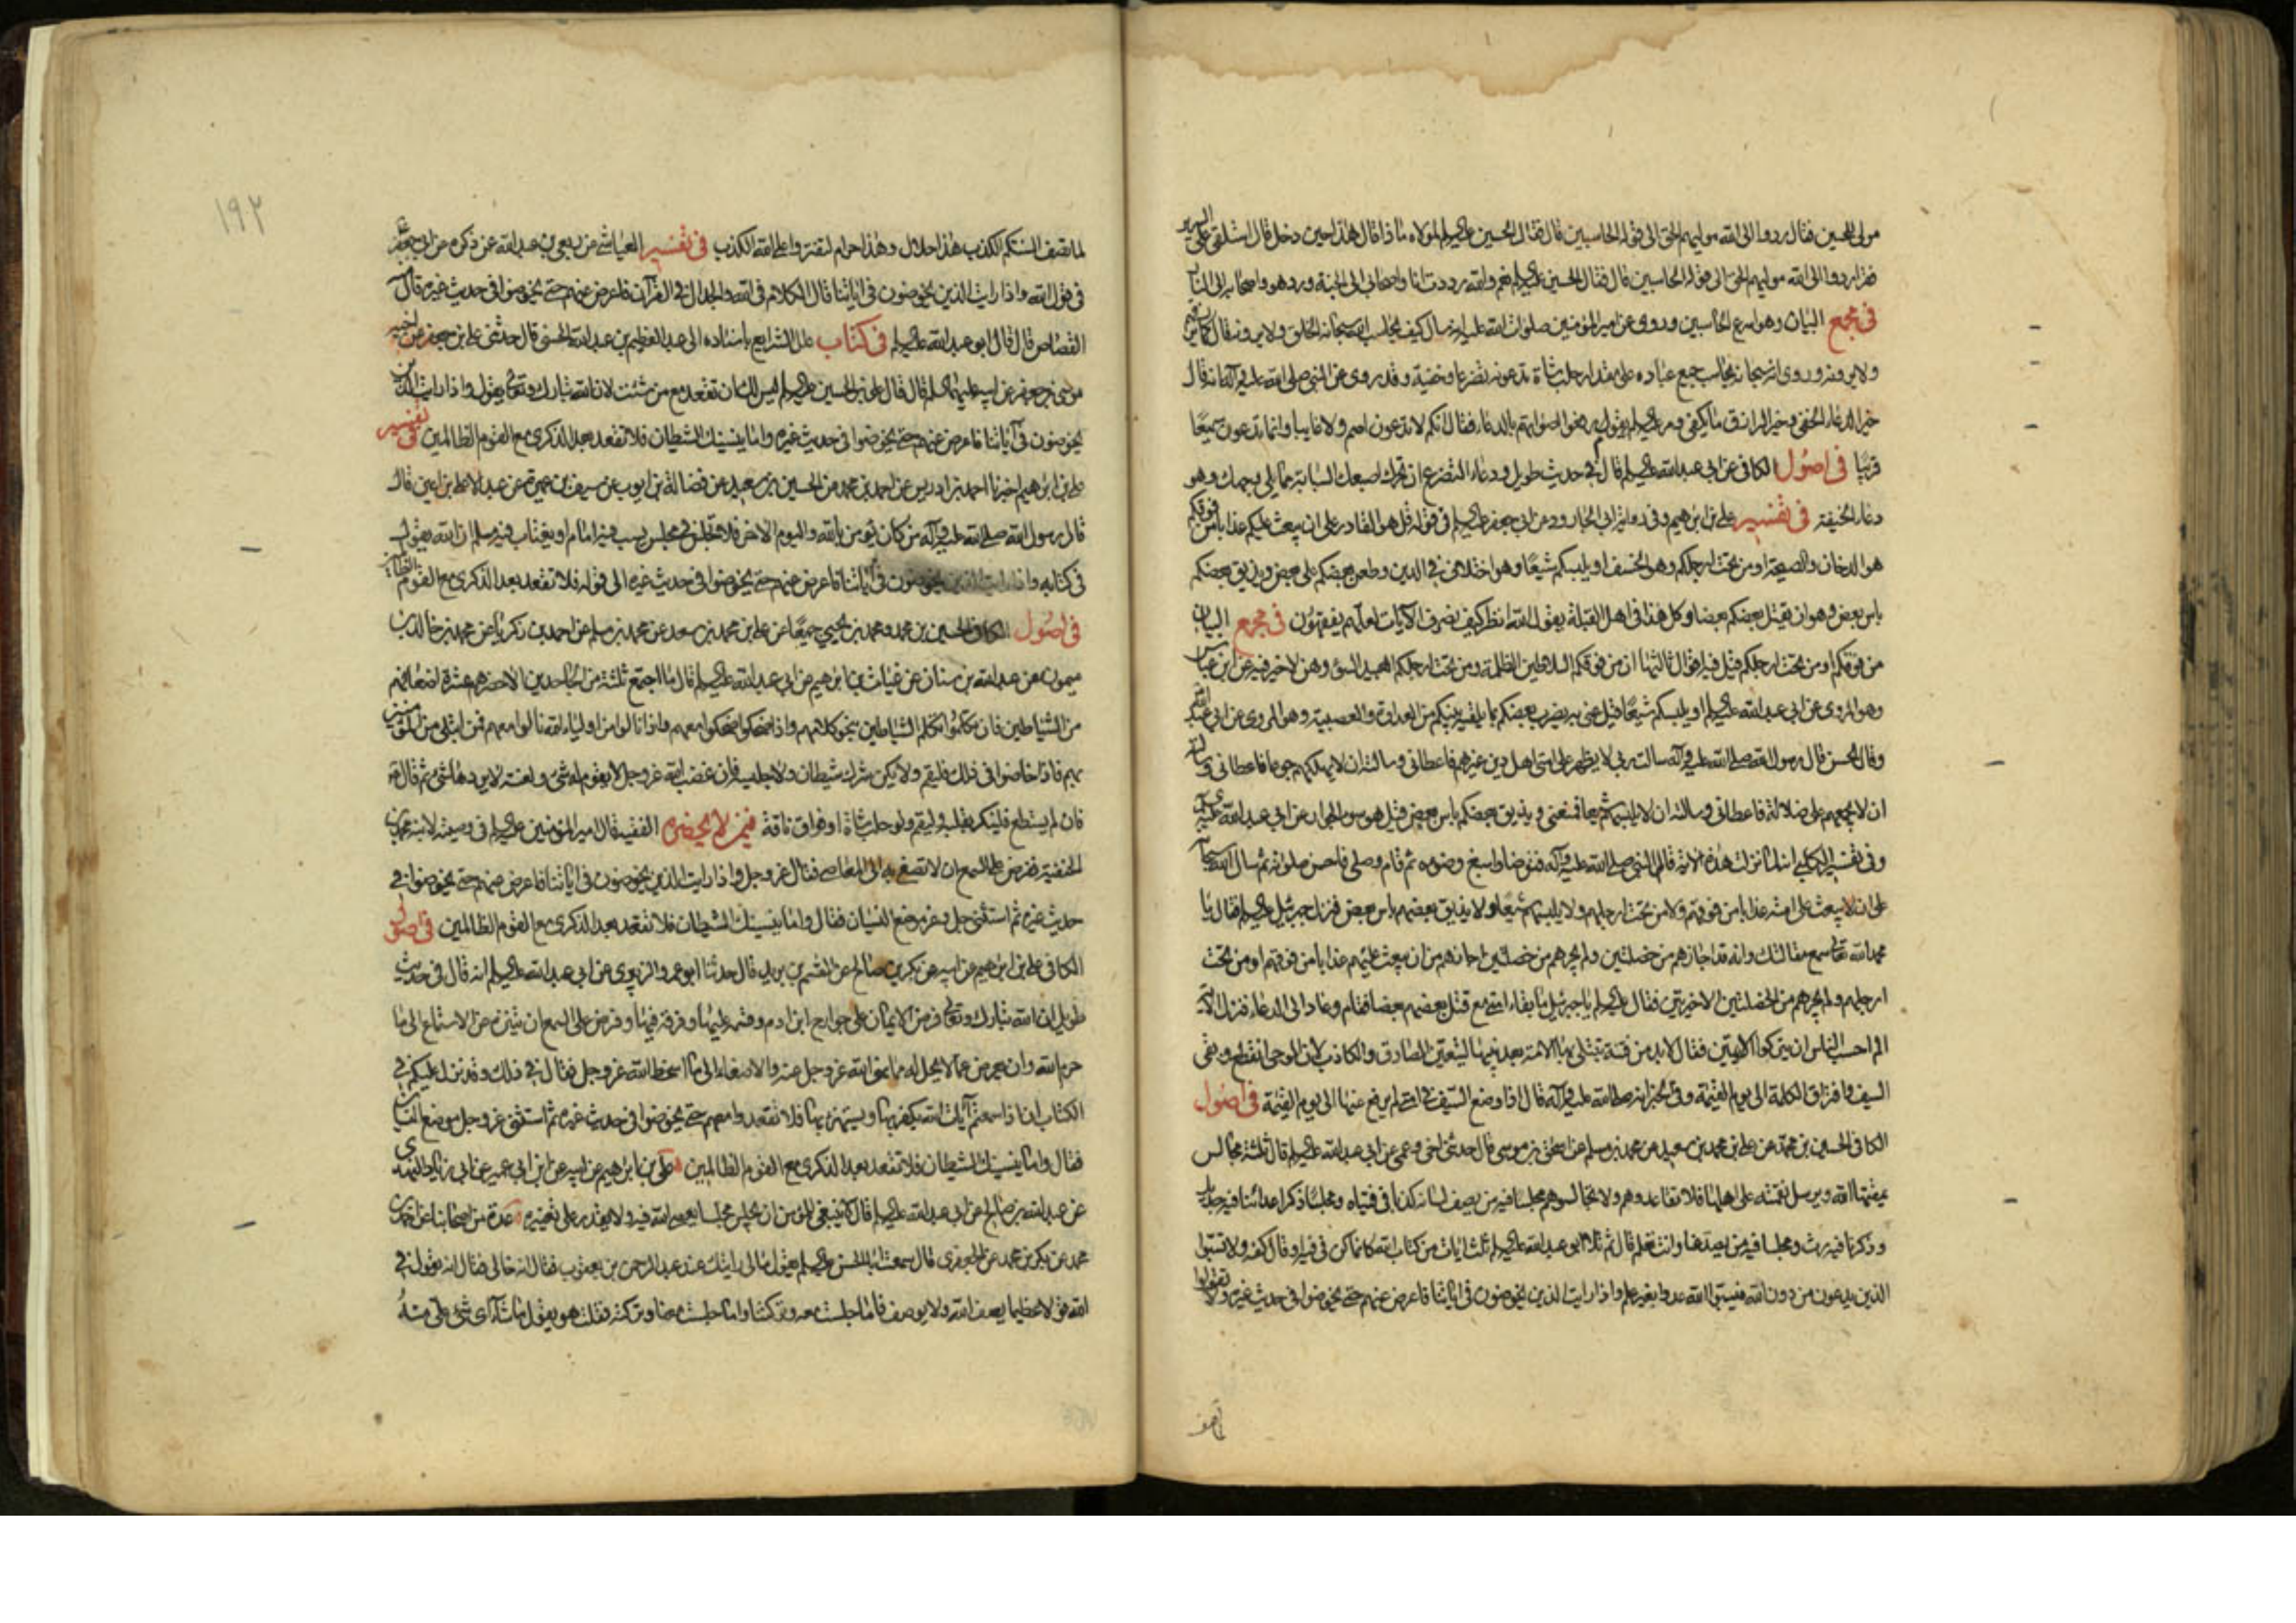 مولى للحسين فقال ردوا الى الله موليهم الحق الى قوله الحاسبين قال فقال الحسين عليه السلم لمولاه ماذا قال هذا حين دخل قال استلقى على السرير
فقرا ردوا الى الله موليهم الحق الى قوله الحاسبين قال فقال الحسين عليه السلم نعم والله رددت انا واصحابى الى الجنة ورد هو واصحابه الى النار
فى مجمع البيان وهو اسرع الحاسبين وروى عن امير المؤمنين صلوات الله عليه انه سأل كيف يحاسب الله سبحانه الخلق ولا يرونه قال كما يرزقهم
ولا يرونه وروى انه سبحانه يحاسب جميع عباده على مقدار حلب شاة تدعونه تضرعا وخفية وقد روى عن النبى صلى الله عليه وآله انه قال
خير الدعاء الخفى وخير الرزق ما يكفى ومر عليه السلم بقوم رفعوا اصواتهم بالدعاء فقال انكم لا تدعون اصم ولا غايبا وانما تدعون سميعًا
قريبًا فى اصول الكافى عن ابى عبد الله عليه السلم قال فى حديث طويل ودعاء التضرع ان تحرك اصبعك السبابة مما يلى وجهك وهو
دعاء الخيفة فى تفسير على بن ابرهيم وفى رواية ابى الجارود عن ابى جعفر عليه السلم فى قوله قل هو القادر على ان يبعث عليكم عذابا من فوقكم
هو الدخان والصيحة او من تحت ارجلكم وهو الخسف او يلبسكم شيعًا وهو اختلاف فى الدين وطعن بعضكم على بعض ويذيق بعضكم
باس بعض وهو ان يقتل بعضكم بعضا وكل هذا فى اهل القبلة يقول الله انظر كيف نصرف الآيات لعلهم يفقهون فى مجمع البيان
من فوقكم او من تحت ارجلكم قيل فيه اقوال ثالثها ان من فوقكم السلاطين الظلمة ومن تحت ارجلكم العبيد السوء ومن لا خير فيه عن ابن عباس
وهو المروى عن ابى عبد الله عليه السلم او يلبسكم شيعًا قيل عنى به يضرب بعضكم بما يلقيه بينكم من العداوة والعصبية وهو المروى عن ابى عبد الله
وقال الحسن قال رسول الله صلى الله عليه وآله سالت ربى لا يظهر على امتى اهل دين غيرهم فاعطانى وسالته ان لا يهلكهم جوعا فاعطانى وسالته
ان لا يجمعهم على ضلالة فاعطانى وسالته ان لا يلبسهم شيعا فمنعنى ويذيق بعضكم باس بعض قيل هو سوء الجوار عن ابى عبد الله عليه السلم
وفى تفسير الكلبى انه لما نزلت هذه الآية قام النبى صلى الله عليه وآله فتوضا واسبغ وضوءه ثم قام وصلى فاحسن صلوته ثم سال الله سبحانه
على ان لا يبعث على امته عذابا من فوقهم ولا من تحت ارجلهم ولا يلبسهم شيعًا ولا يذيق بعضهم باس بعض فنزل جبرئيل عليه السلم فقال يا
محمد الله تعالى سمع مقالتك وانه قد اجارهم من خصلتين ولم يجرهم من خصلتين اجارهم من ان يبعث عليهم عذابا من فوقهم او من تحت
ارجلهم ولم يجرهم من الخصلتين الاخريتين فقال عليه السلم يا جبرئيل ما بقاء امتى مع قتل بعضهم بعضا فقام وعاد الى الدعاء فنزل الآية
الم احسب الناس ان يتركوا الآيتين فقال لا بد من فتنة تبتلى بها الامة بعد نبيها ليتعين الصادق والكاذب لان الوحى انقطع وبقى
السيف وافتراق الكلمة الى يوم القيمة وفى الخبر انه صلى الله عليه وآله قال اذا وضع السيف فى امتى لم يرفع عنها الى يوم القيمة فى اصول
الكافى الحسين بن محمد عن على بن محمد بن سعيد عن محمد بن مسلم عن اسحق بن موسى قال حدثنى اخى وعمى عن ابى عبد الله عليه السلم قال ثلثة مجالس
يمقتها الله ويرسل نقمته على اهلها فلا تقاعدوهم ولا تجالسوهم مجلسا فيه من يصف لسانه كذبا فى فتياه ومجلسا ذكر اعدائنا فيه جديد
وذكرنا فيه رث ومجلسا فيه من يصد عنا وانت تعلم قال ثم تلا ابو عبد الله عليه السلم ثلث ايات من كتاب الله كانما كن فى فيه او قال كفه ولا تسبوا
الذين يدعون من دون الله فيسبوا الله عدوا بغير علم واذا رايت الذين يخوضون فى اياتنا فاعرض عنهم حتى يخوضوا فى حديث غيره ولا تقولوا
لما تصف السنتكم الكذب هذا حلال وهذا حرام لتفتروا على الله الكذب فى تفسير العياشى عن ربعى بن عبد الله عن ذكره عن ابى جعفر
فى قول الله واذا رايت الذين يخوضون فى اياتنا قال الكلام فى الله والجدال فى القرآن فاعرض عنهم حتى يخوضوا فى حديث غيره قال
القصاص قال قال ابو عبد الله عليه السلم فى كتاب علل الشرايع باسناده الى عبد العظيم بن عبد الله الحسنى قال حدثنى على بن جعفر عن اخيه
موسى بن جعفر عن ابيه عليهما السلم قال قال على بن الحسين عليه السلم ليس لك ان تقعد مع من شئت لان الله تبارك وتعالى يقول واذا رايت الذين
يخوضون فى آياتنا فاعرض عنهم حتى يخوضوا فى حديث غيره واما ينسينك الشيطان فلا تقعد بعد الذكرى مع القوم الظالمين فى تفسير
على بن ابرهيم اخبرنا احمد بن ادريس عن احمد بن محمد عن الحسين بن سعيد عن فضالة بن ايوب عن سيف بن عميرة عن عبد الاعلى بن اعين قال
قال رسول الله صلى الله عليه وآله من كان يؤمن بالله واليوم الآخر فلا يجلس فى مجلس يسب فيه امام او يغتاب فيه مسلم ان الله يقول
فى كتابه واذا رايت الذين يخوضون فى آياتنا فاعرض عنهم حتى يخوضوا فى حديث غيره الى قوله فلا تقعد بعد الذكرى مع القوم الظالمين
فى اصول الكافى الحسين بن محمد ومحمد بن يحيى جميعًا عن على بن محمد بن سعد عن محمد بن مسلم عن احمد بن زكريا عن محمد بن خالد بن
ميمون عن عبد الله بن سنان عن غياث بن ابرهيم عن ابى عبد الله عليه السلم قال ما اجتمع ثلثة من الجاحدين الا حضرهم عشرة اضعافهم
من الشياطين فان تكلموا تكلم الشياطين بنحو كلامهم واذا ضحكوا ضحكوا معهم واذا نالوا من اولياء الله نالوا معهم فمن ابتلى من المؤمنين
بهم فاذا خاضوا فى ذلك فليقم ولا يكن شرك شيطان ولا جليسه فان غضب الله عز وجل لا يقوم له شىء ولعنته لا يردها شىء ثم قال
فان لم يستطع فلينكر بقلبه وليقم ولو حلب شاة او فواق ناقة فيمن لا يحضره الفقيه قال امير المؤمنين عليه السلم فى وصيته لابنه محمد بن
الحنفية ففرض على السمع ان لا تصغى به الى المعاصى فقال عز وجل واذا رايت الذين يخوضون فى اياتنا فاعرض عنهم حتى يخوضوا فى
حديث غيره ثم استثنى جل وعز موضع النسيان فقال واما ينسينك الشيطان فلا تقعد بعد الذكرى مع القوم الظالمين فى اصول
الكافى على بن ابرهيم عن ابيه عن بكر بن صالح عن القسم بن بريد قال حدثنا ابو عمرو الزبيرى عن ابى عبد الله عليه السلم انه قال فى حديث
طويل ان الله تبارك وتعالى فرض الايمان على جوارح ابن ادم وقسمه عليها وفرقه فيها وفرض على السمع ان يتنزه عن الاستماع الى ما
حرم الله وان يعرض عما لا يحل له مما نهى الله عز وجل عنه والاصغاء الى ما اسخط الله عز وجل فقال فى ذلك وقد نزل عليكم فى
الكتاب ان اذا سمعتم آيات الله يكفر بها ويستهزء بها فلا تقعدوا معهم حتى يخوضوا فى حديث غيره ثم استثنى عز وجل موضع النسيان
فقال واما ينسينك الشيطان فلا تقعد بعد الذكرى مع القوم الظالمين على بن ابرهيم عن ابيه عن ابن ابى عمير عن ابى زياد النهدى
عن عبد الله بن صالح عن ابى عبد الله عليه السلم قال لا ينبغى للمؤمن ان يجلس مجلسا يعصى الله فيه ولا يقدر على تغييره عدة من اصحابنا عن احمد بن
محمد عن بكر بن محمد عن الجعفرى قال سمعت ابا الحسن عليه السلم يقول ما لى رايتك عند عبد الرحمن بن يعقوب فقال انه خالى فقال انه يقول فى
الله قولا عظيما يصف الله ولا يوصف فاما جلست معه وتركتنا واما جلست معنا وتركته فقلت هو يقول ما شاء اى شىء على منه
١٩٢